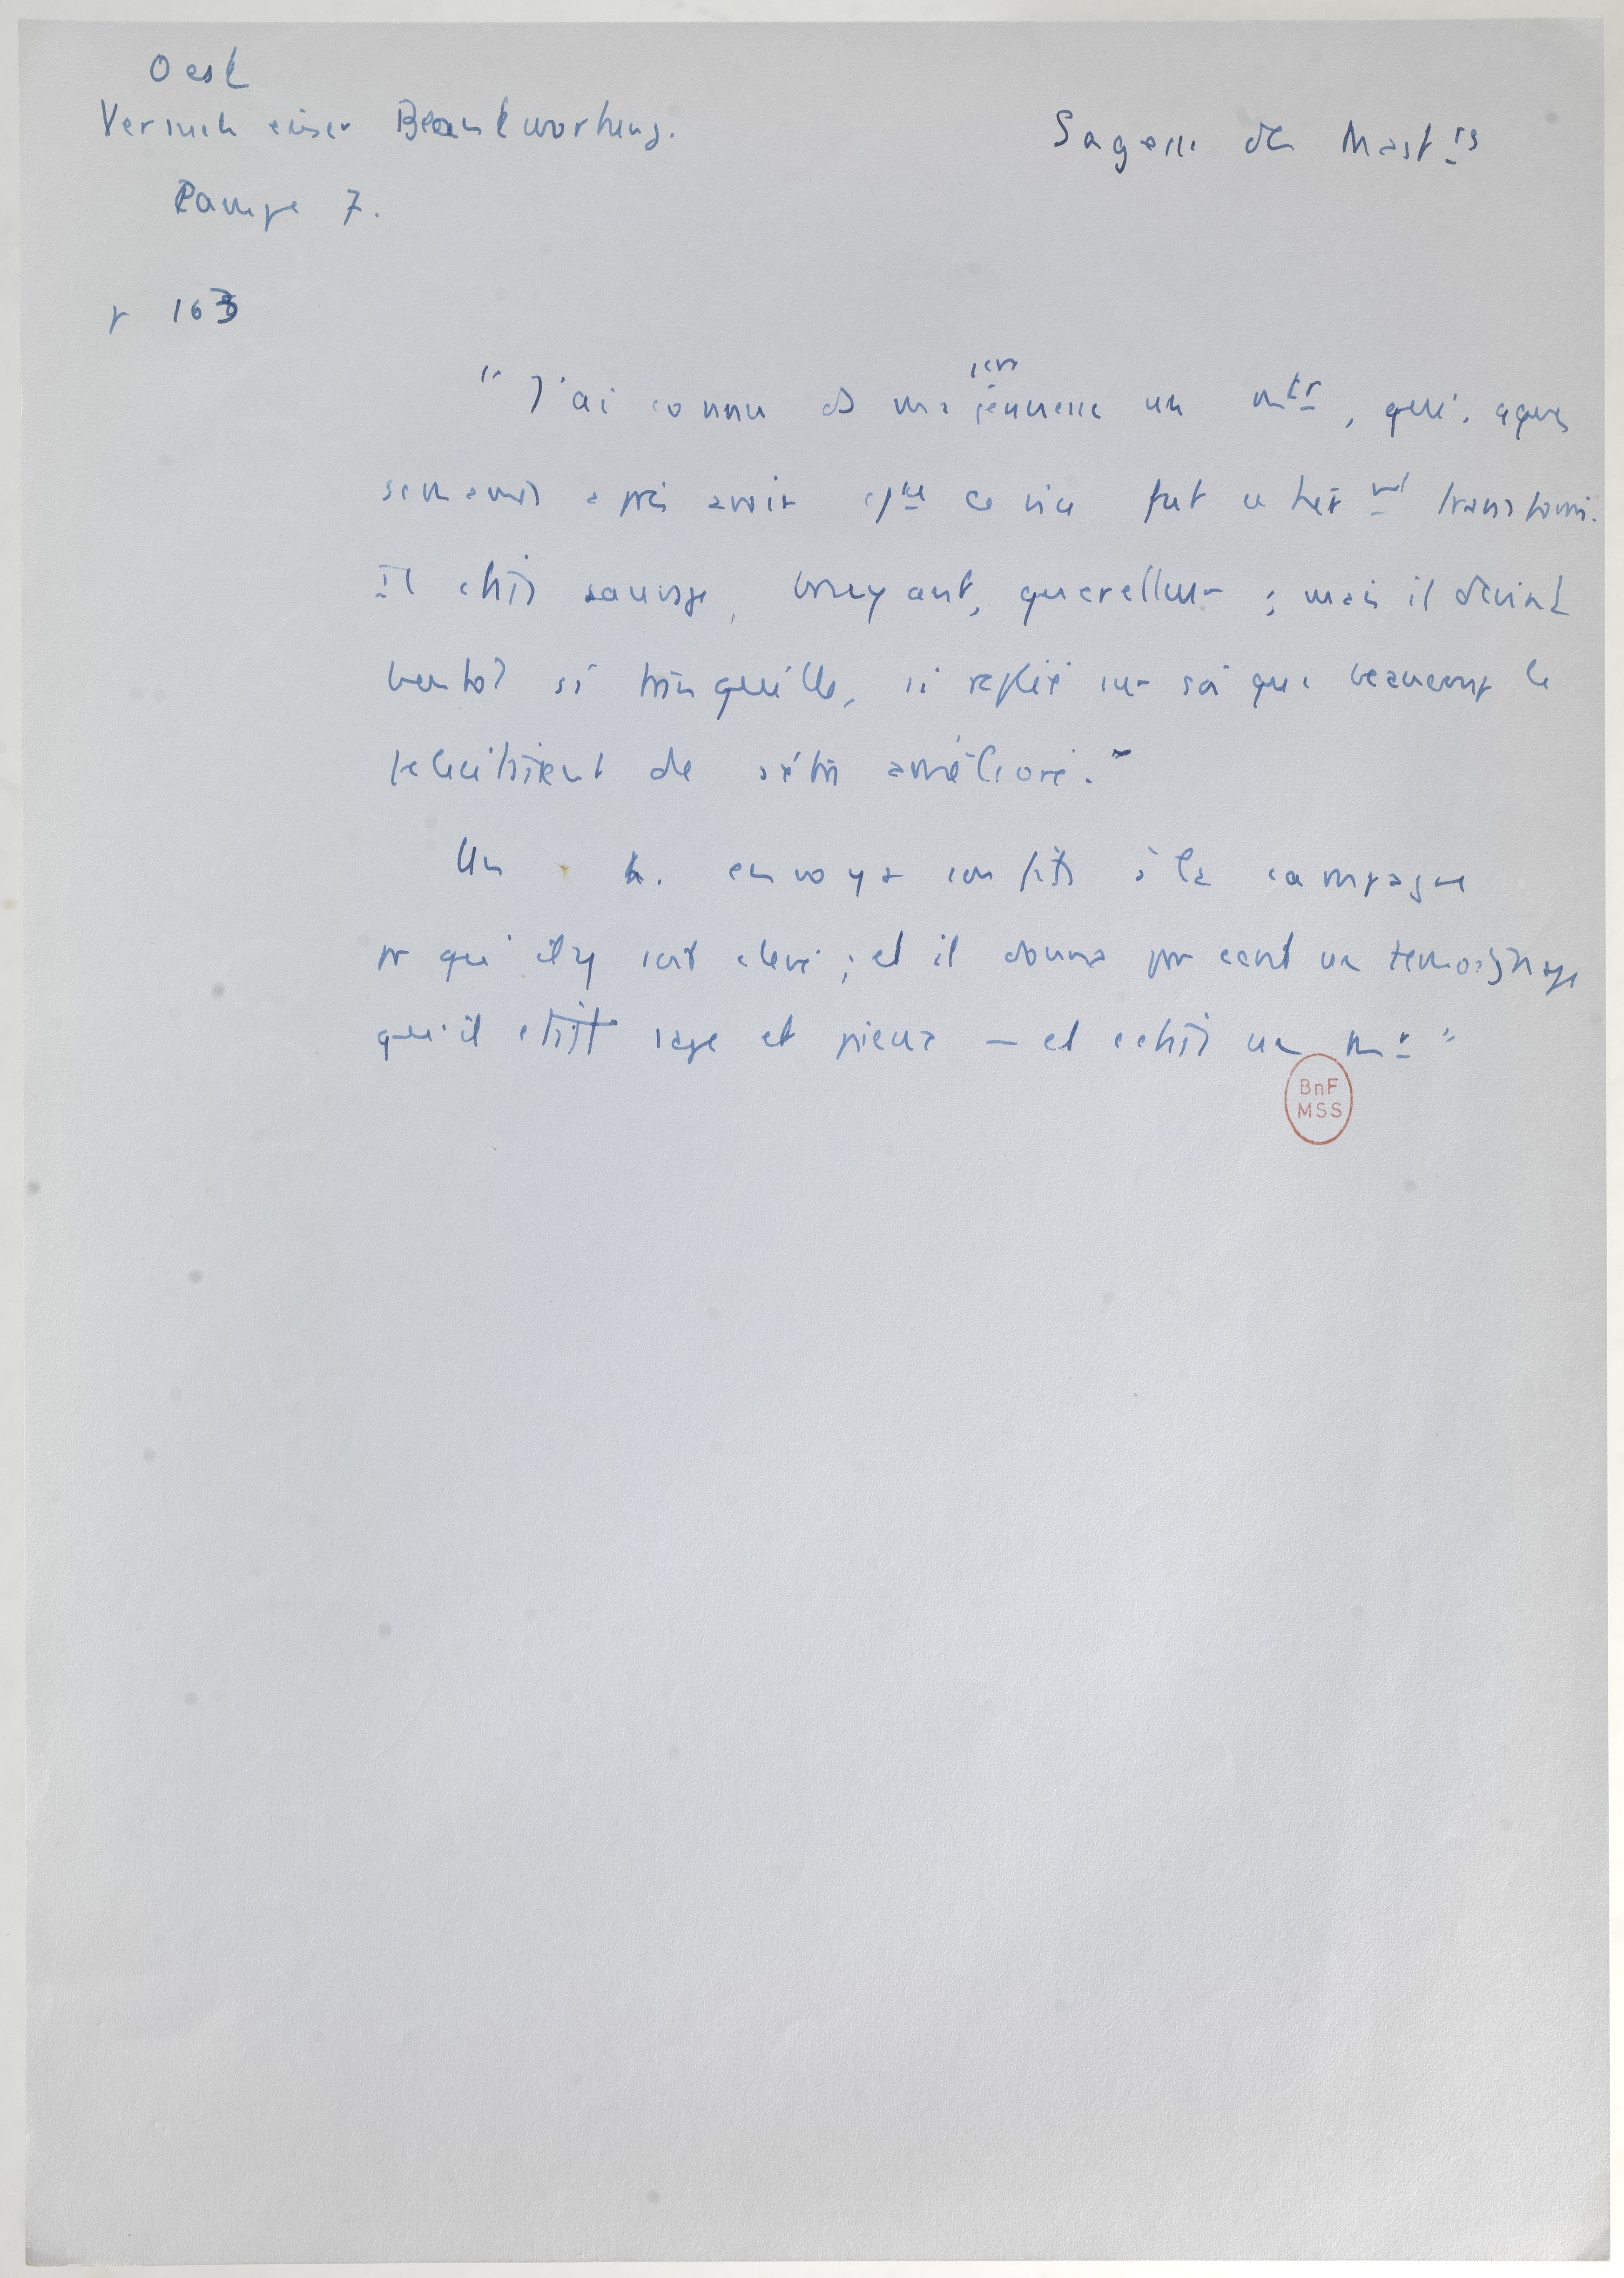 Oest
Versuch einer Beantwortung.
Campe 7.
Sagesse des Mast rs
p 163
"J'ai connu ds ma jeunesse un mtr, qui, qques
semaines après avoir ce vice fut entièr mt transformé.
Il était sauvage, bruyant, querelleur ; mais il devint
bientot si tranquille, si replié sur soi que beaucoup le
felicitaient de s'être amélioré."
Un h. envoya son fils à la campagne
pr qu'il y soit élevé ; et il donna pr cent un temoignage
qu'il était sage et pieux — et c'était un m r "
BnF
MSS